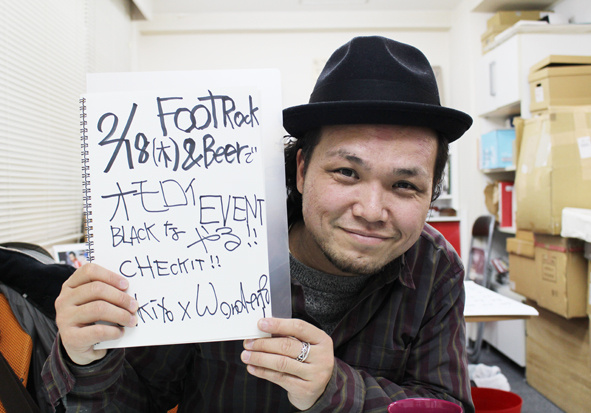 2/18(木) FOOT Rock
&Beerで
オモロイ EVENT
BLACKな やる!!
CHECKIT!!
x Wonder